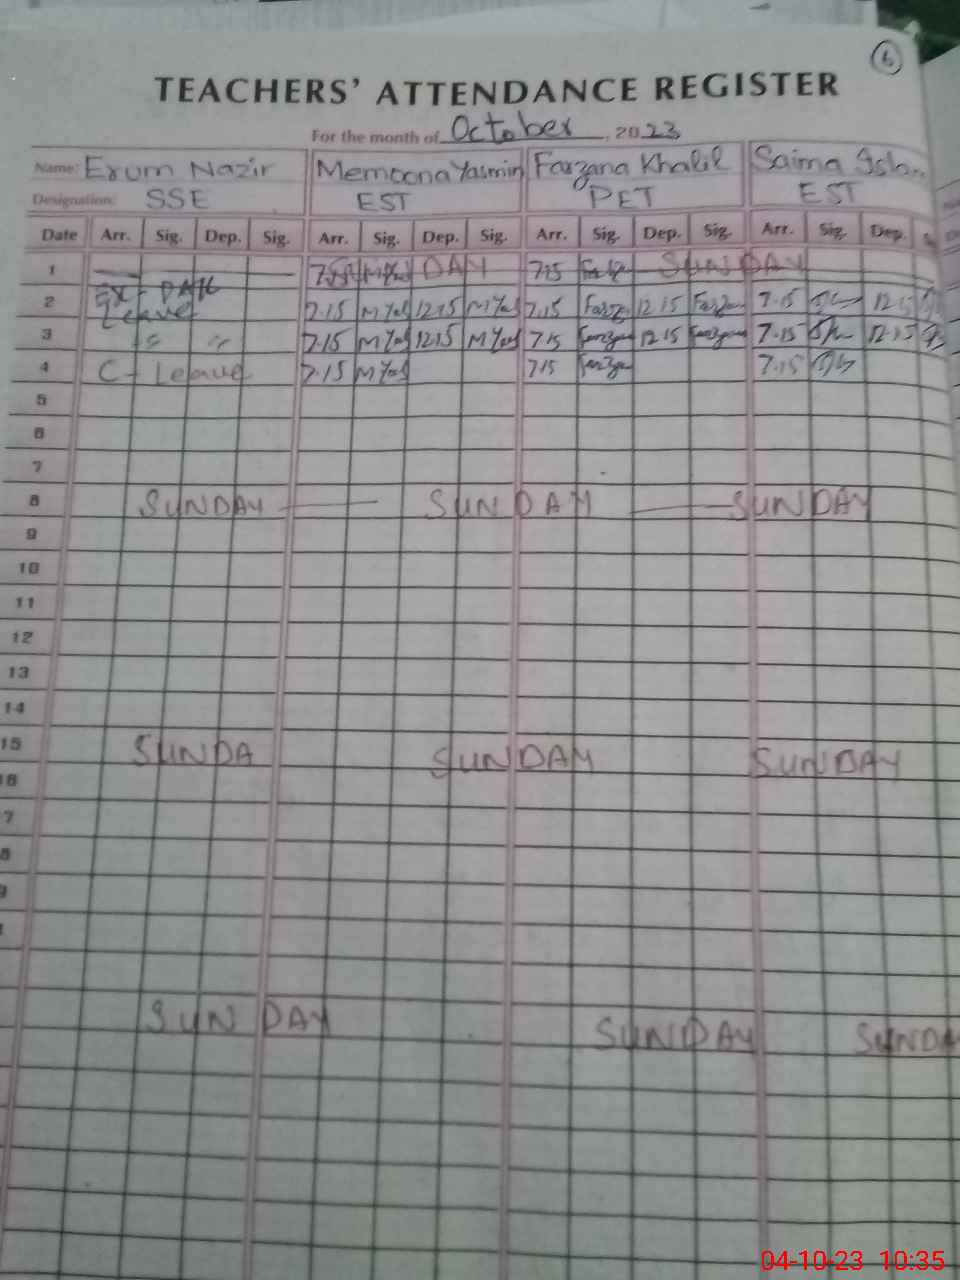 6
TEACHERS' ATTENDANCE REGISTER
For the month of October, 2023
Name: Erum Nazir Memoona Yasmin Farzana Khalil Saima
Designation: SSE EST PET EST
Date Arr. Sig. Dep. Sig. Arr. Sig. Dep. Sig. Arr. Sig. Dep. Sig. Arr. Sig. Dep.
1 DAY 7.15 SUNDAY
2 Leave 7.15 MYas 12.15 MYas 7.15 Farz 12.15 Farz 7.15 12.15
3 7.15 MYas 12.15 MYas 7.15 12.15 7.15 12.15
4 C-Leave 7.15 MYas 7.15 7.15
5
6
7
8 SUNDAY SUNDAY SUNDAY
9
10
11
12
13
14
15 SUNDA SUNDAY SUNDAY
16
7
8
9
SUNDAY SUNDAY SUNDA
04-10-23 10:35